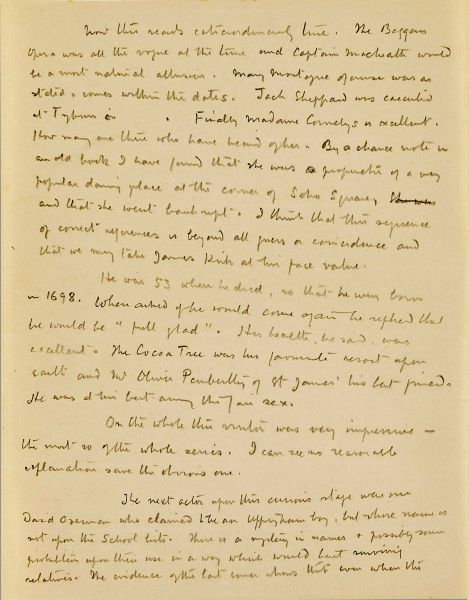 Now this reads extraordinarily true. The Beggars
Opera was all the vogue at the time and Captain Macheath would
be a most natural allusion. Mary Montague of course was as
stated & comes within the dates. Jack Sheppard was executed
at Tyburn in . Finally Madame Cornelys is excellent.
How many are there who have heard of her. By a chance note in
an old book I have found that she was a proprietor of a very
popular dancing place at the corner of Soho Square,
and that she went bankrupt. I think that this sequence
of correct references is beyond all guess or coincidence and
that we may take James Kirk at his face value.
He was 53 when he died, so that he was born
in 1698. When asked if he would come again he replied that
he would be "full glad". His health, he said, was
excellent. The Cocoa Tree was his favourite resort upon
earth and Mr Oliver Pemberthy of St James' his best friend.
He was at his best among the fair sex.
On the whole this visitor was very impressive —
the most so of the whole series. I can see no reasonable
explanation save the obvious one.
The next actor upon this curious stage was one
David Overman who claimed to be an Uppingham boy, but whose name is
not upon the School lists. There is a mystery in names & possibly some
prohibition upon their use in a way which would hurt surviving
relatives. The evidence of the last comer shows that even when the